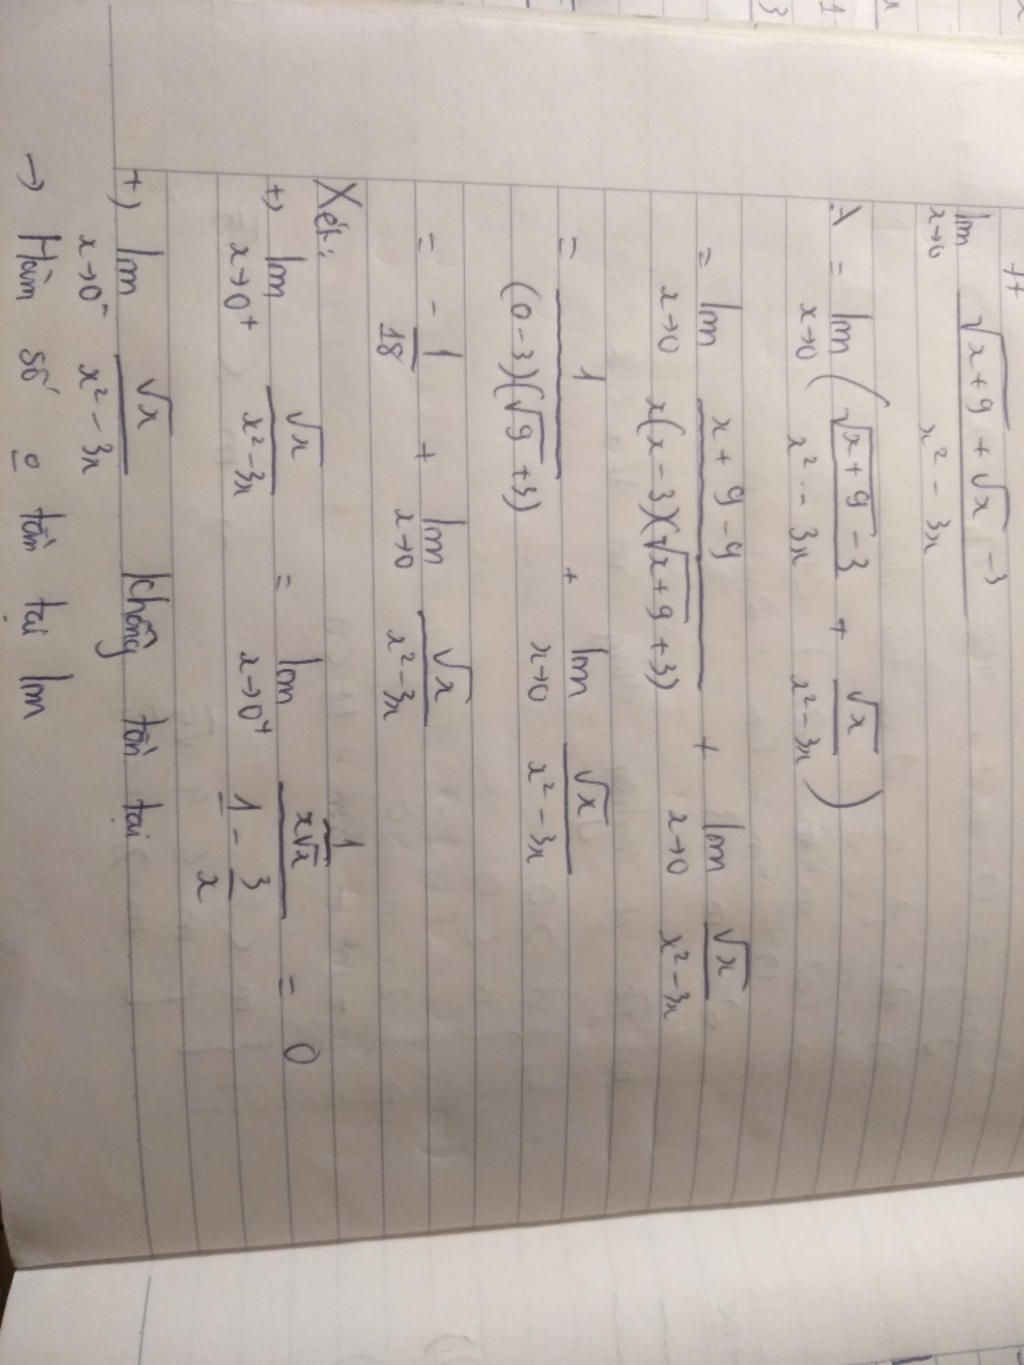 lim x→0 (√(x+9) + √x - 3)/(x² - 3x)
A = lim x→0 ( (√(x+9) - 3)/(x² - 3x) + √x/(x² - 3x) )
= lim x→0 (x + 9 - 9)/(x(x - 3)(√(x+9) + 3)) + lim x→0 √x/(x² - 3x)
= 1/((0 - 3)(√9 + 3)) + lim x→0 √x/(x² - 3x)
= - 1/18 + lim x→0 √x/(x² - 3x)
Xét:
+) lim x→0⁺ √x/(x² - 3x) = lim x→0⁺ (1/(x√x))/(1 - 3/x) = 0
+) lim x→0⁻ √x/(x² - 3x) không tồn tại
→ Hàm số o̲ tồn tại lim